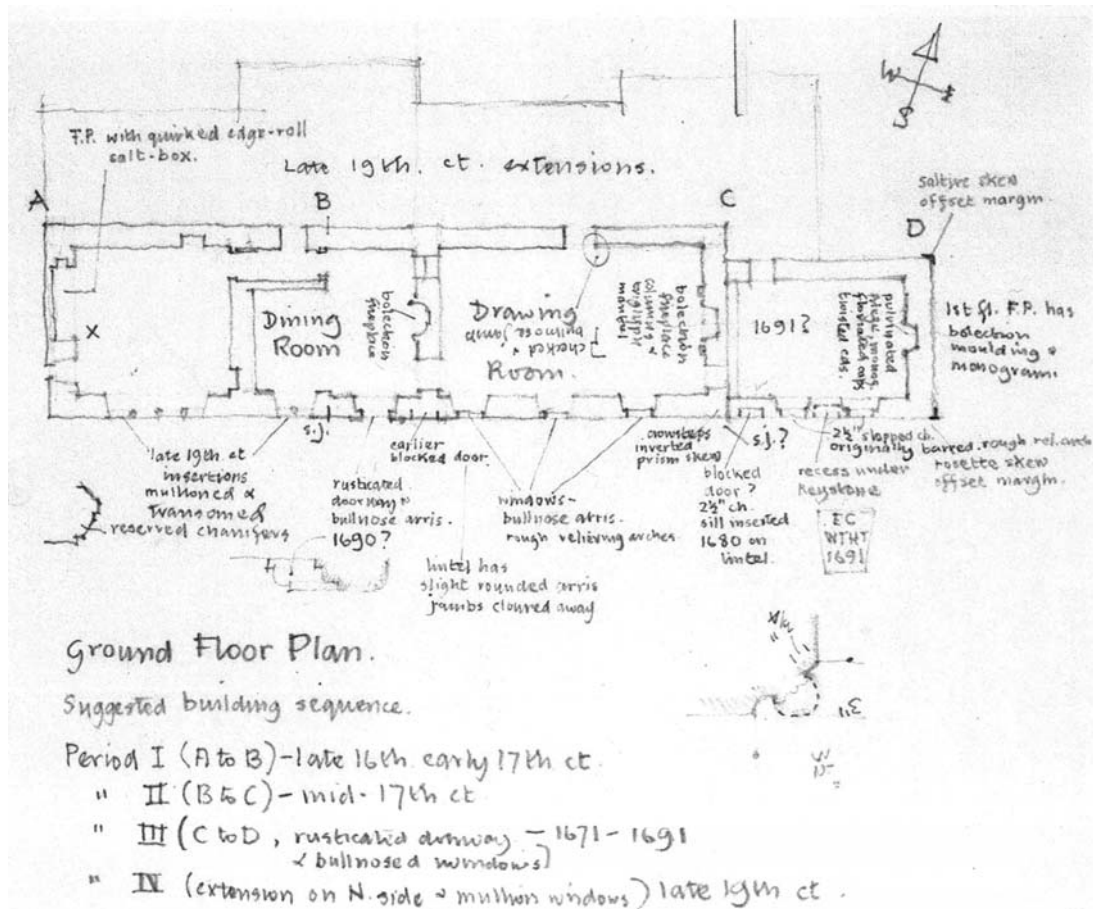 F.P. with quirked edge-roll
salt-box.
Late 19th. ct. extensions.
A
B
C
D
N
E
S
W
saltire skew
offset margin.
X
Dining
Room
bolection
fireplace
Drawing
Room.
checked &
bullnose jamb
bolection
fireplace
columns &
triglyph
mantel
1691?
pulvinated
frieze, monog.
twisted cols.
1st fl. F.P. has
bolection
moulding &
monogram.
late 19th ct
insertions
mullioned &
transomed
reserved chamfers
s.j.
rusticated
doorway &
bullnose arris.
1690?
earlier
blocked door.
lintel has
slight rounded arris
jambs cloured away
windows -
bullnose arris.
rough relieving arches.
crowsteps
inverted
prism skew
s.j.?
blocked
door?
2½" ch.
sill inserted
1680 on
lintel.
2½" stopped ch.
originally barred.
recess under
keystone
EC
WTHT
1691
rough rel. arch
rosette skew
offset margin.
3"
Ground Floor Plan.
Suggested building sequence.
Period I (A to B) - late 16th early 17th ct.
" II (B to C) - mid-17th ct
" III (C to D, rusticated doorway - 1671 - 1691
& bullnosed windows)
" IV (extension on N. side & mullion windows) late 19th ct.